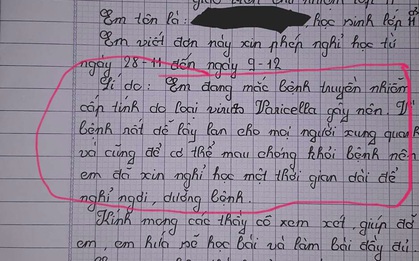 Em tên là: học sinh lớp 11
Em viết đơn này xin phép nghỉ học từ
ngày 28-11 đến ngày 9-12
Lí do: Em đang mắc bệnh truyền nhiễm
cấp tính do loại virut Varicella gây nên. Vì
bệnh rất dễ lây lan cho mọi người xung quanh
và cũng để có thể mau chóng khỏi bệnh nên
em đã xin nghỉ học một thời gian dài để
nghỉ ngơi, dưỡng bệnh.
Kính mong các thầy cô xem xét, giúp đỡ
em, em hứa sẽ học bài và làm bài đầy đủ